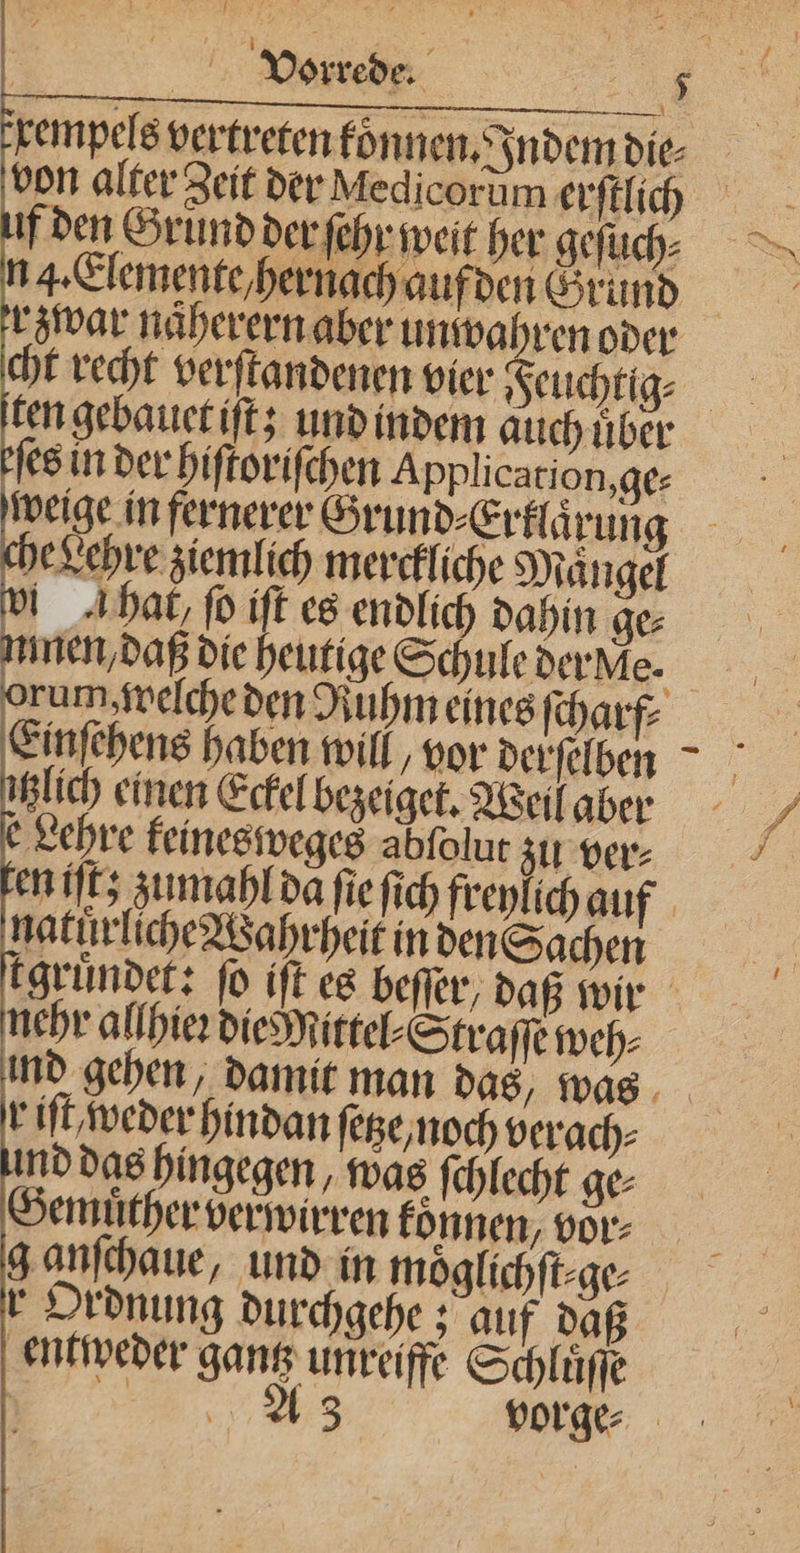 Vorrede. 5
Exempels vertreten koͤnnen. Indem die⸗
von alter Zeit der Medicorum erſtlich
uf den Grund der ſehr weit her geſuch⸗
n 4. Elemente, hernach auf den Grund
r zwar naͤherern aber unwahren oder
cht recht verſtandenen vier Feuchtig⸗
iten gebauet iſt; und indem auch uͤber
eſes in der hiſtoriſchen Application, ge⸗
weige in fernerer Grund⸗Erklaͤrung
che Lehre ziemlich merckliche Maͤngel
hat, ſo iſt es endlich dahin ge⸗
mmen, daß die heutige Schule der Me-
orum, welche den Ruhm eines ſcharf⸗
Einſehens haben will, vor derſelben
tzlich einen Eckel bezeiget. Weil aber
e Lehre keinesweges abſolut zu ver⸗
en iſt; zumahl da ſie ſich freylich auf
natuͤrliche Wahrheit in den Sachen
gruͤndet: ſo iſt es beſſer, daß wir
mehr allhier die Mittel⸗Straſſe weh⸗
nd gehen, damit man das, was
r iſt, weder hindan ſetze, noch verach⸗
und das hingegen, was ſchlecht ge⸗
Gemuͤther verwirren koͤnnen, vor⸗
g anſchaue, und in moͤglichſt⸗ge⸗
r Ordnung durchgehe; auf daß
entweder gantz unreiffe Schluͤſſe
A 3 vorge⸗